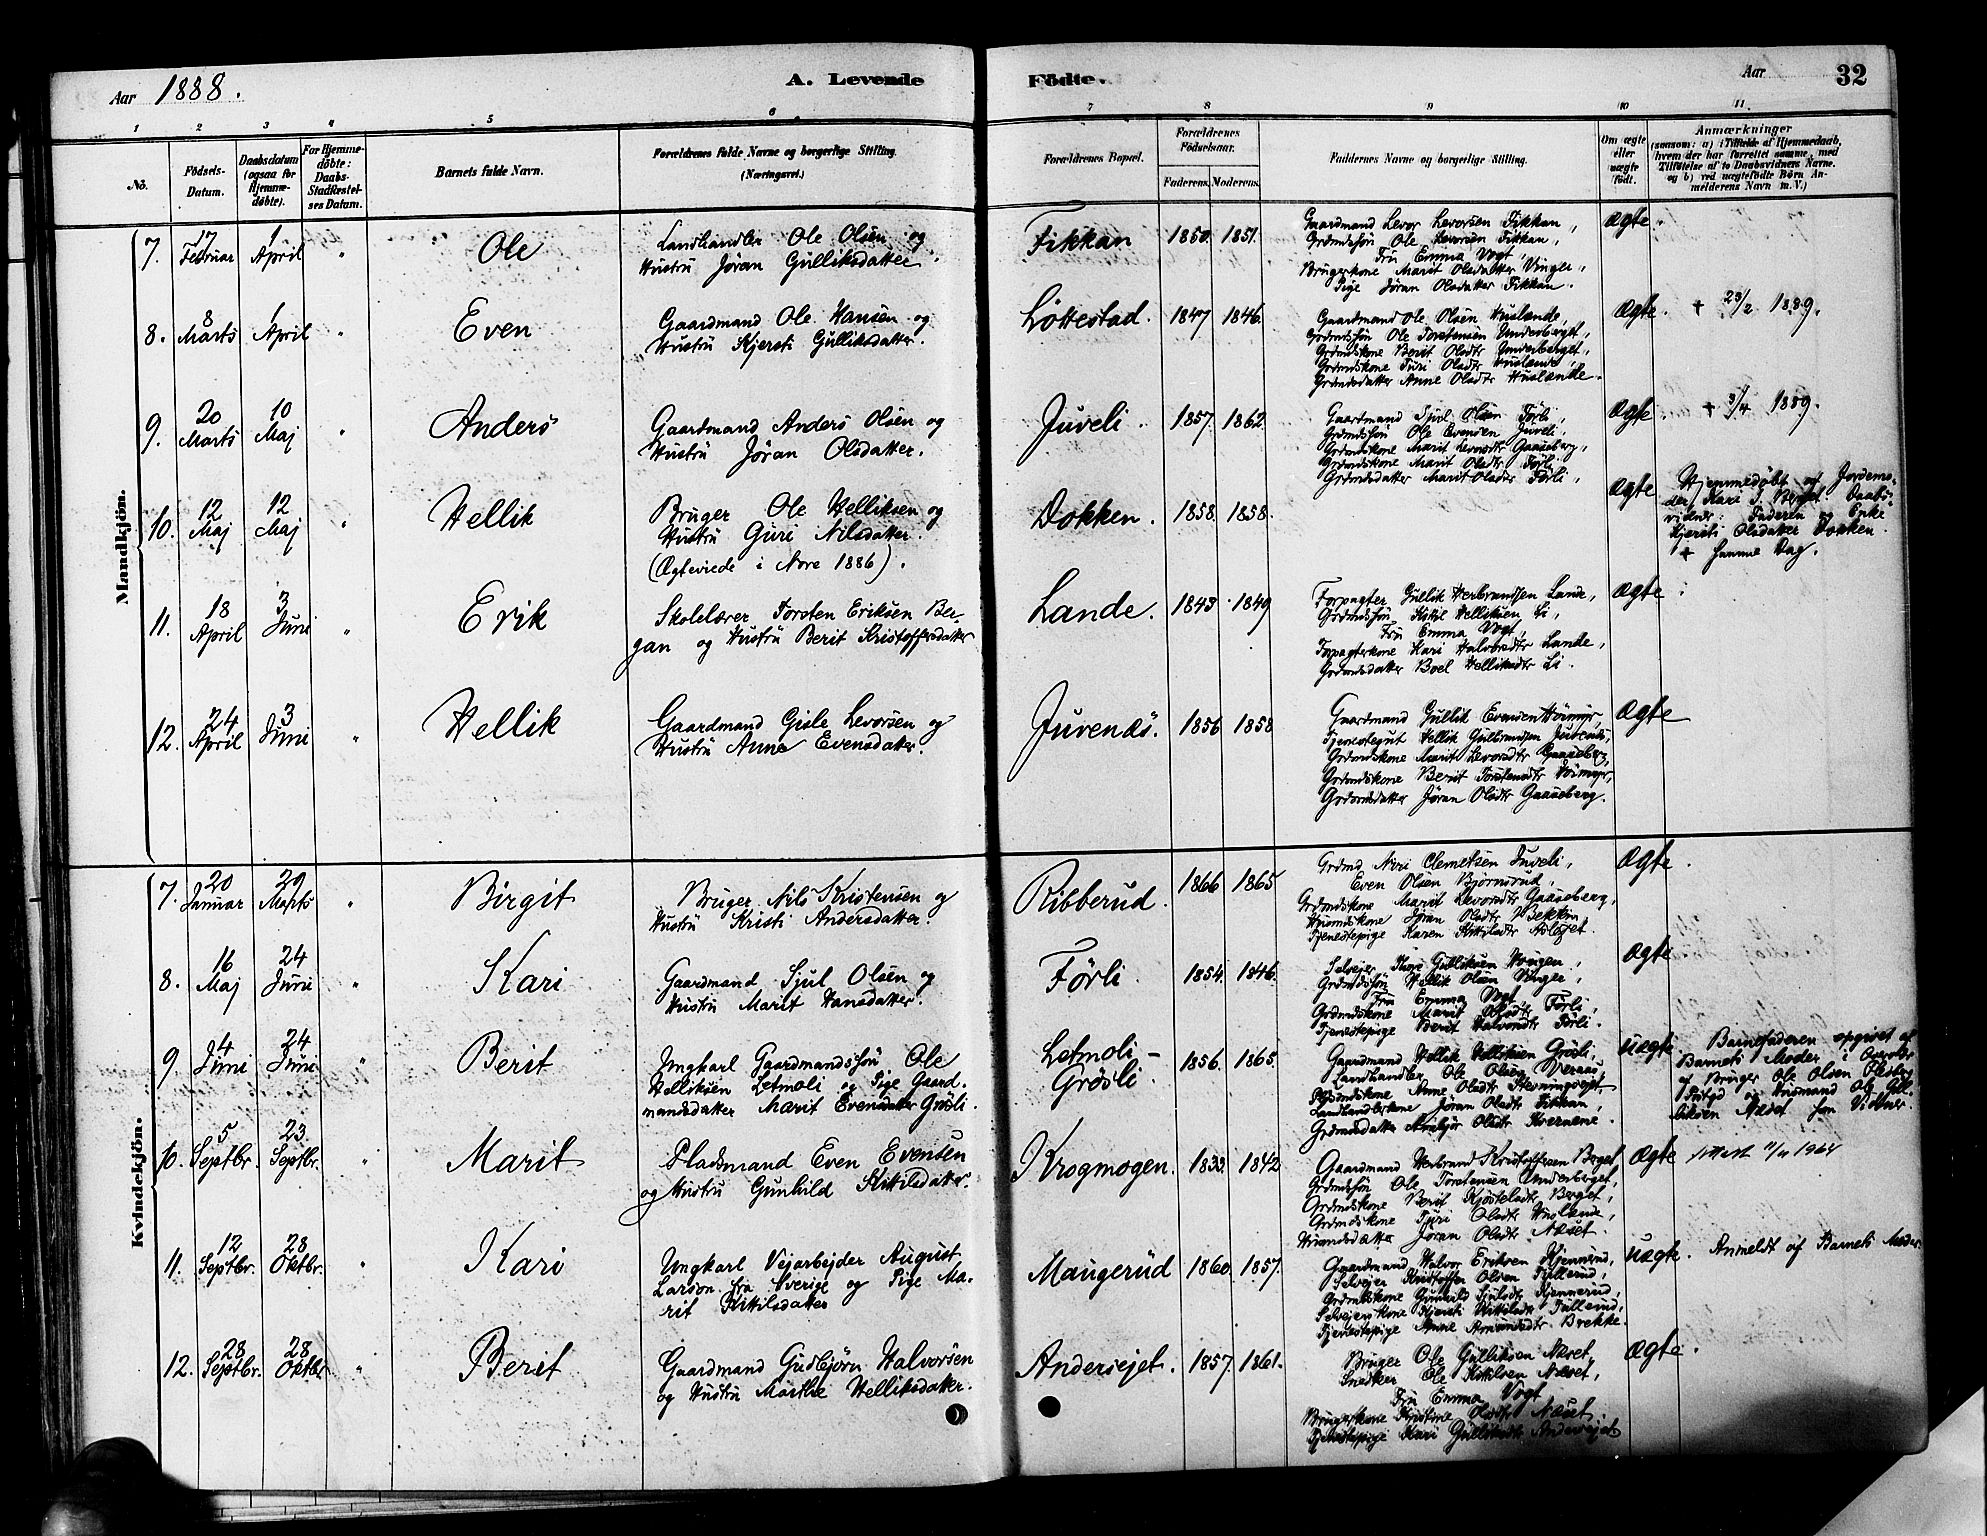 Aar 1888.
A. Levende Födte.
Aar
32
1 2 3 4 5 6 7 8 9 10 11
No.
Födsels-Datum.
Daabsdatum (ogsaa for Hjemme-döbte).
For Hjemme-döbte: Daabs-Stadfestel-ses Datum.
Barnets fulde Navn.
Forældrenes fulde Navne og borgerlige Stilling.
(Næringsvei.)
Forældrenes Bopæl.
Forældrenes Födselsaar.
Faderens. Moderens.
Faddernes Navne og borgerlige Stilling.
Om ægte eller uægte födt.
Anmærkninger
(saasom: a) i Tilfælde af Hjemmedaab, hvem der har forrettet samme, med Tilföielse af to Daabsvidners Navne, og b) ved uægtefödte Börn An-melderens Navn m. V.)
Mandkjön.
7. 17 Februar 1 April " Ole
Landhandler Ole Olsen og
Hustru Jøran Gulliksdatter.
Fikkan 1850. 1851.
Gaardmand Levor Levorsen Fikkan,
Grdmdsøn Ole Levorsen Fikkan,
Fru Emma Vogt,
Brugerkone Marit Olsdatter Vinger,
Pige Jøran Olsdatter Fikkan.
Ægte.
8. 8 Marts 1 April " Even
Gaardmand Ole Hansen og
Hustru Kjersti Gulliksdatter.
Løttestad. 1847 1846.
Gaardmand Ole Olsen Huslænde,
Grdmdsøn Ole Torstensen Underberget,
Grdmdskone Berit Olsdtr Underberget,
Grdmdskone Turi Olsdtr Huslænde,
Grdmdsdatter Anne Olsdtr Huslænde.
Ægte. + 23/2 1889.
9. 20 Marts 10 Maj " Anders
Gaardmand Anders Olsen og
Hustru Jøran Olsdatter.
Juveli. 1857. 1862.
Gaardmand Sjul Olsen Førli,
Grdmdsøn Ole Evensen Juveli,
Grdmdskone Marit Levorsdtr Gaaseberg,
Grdmdskone Marit Olsdtr Førli,
Grdmdsdatter Marit Olsdtr Førli,
Ægte. + 3/4 1889.
10. 12 Maj 12 Maj " Hellik
Bruger Ole Helliksen og
Hustru Guri Nilsdatter.
(Ægteviede i Nore 1886).
Dokken. 1858. 1858.
Ægte
Hjemmedøbt af Jordemo-
der Kari J. Berget. Daabs-
vidner: Faderen og Enke
Kjersti Olsdatter Dokken.
+ samme Dag.
11. 18 April 3 Juni " Erik
Skolelærer Torsten Eriksen Ber-
gan og Hustru Berit Kristoffersdatter
Lande. 1843. 1849
Forpagter Gullik Herbrandsen Lande,
Grdmdsøn Kittil Helliksen Li,
Fru Emma Vogt,
Forpagterkone Kari Halvorsdtr Lande,
Grdmdsdatter Boel Helliksdtr Li.
Ægte
12. 24 April 3 Juni " Hellik
Gaardmand Gisle Levorsen og
Hustru Anne Evensdatter.
Juvenæs. 1856 1858
Gaardmand Gullik Evensen
Tjenestegut Hellik Gulbrandsen Juvenæs,
Grdmdskone Marit Levorsdtr Gaaseberg,
Grdmdskone Berit Torstensdtr
Grdmdsdatter Jøran Olsdtr Gaaseberg.
Ægte
Kvindekjön.
7. 20 Januar 29 Marts " Birgit
Bruger Nils Kristensen og
Hustru Kristi Andersdatter.
Ribberud. 1866 1865
Grdmd Clemetsen Juveli,
Even Olsen Bjørnsrud,
Grdmdskone Marit Levorsdtr Gaaseberg,
Husmdskone Jøran Olsdtr Bekken
Tjenestepige Karen Kittilsdtr
Ægte.
8. 16 Maj 24 Juni " Kari
Gaardmand Sjul Olsen og
Hustru Marit Hansdatter.
Førli. 1854. 1846.
Selveier Gulliksen
Grdmdsøn Hellik Olsen Vinger,
Fru Emma Vogt,
Grdmdskone Marit Olsdtr Førli,
Tjenestepige Berit Halvorsdtr Førli.
Ægte
9 4 Juni 24 Juni " Berit
Ungkarl Gaardmandssøn Ole
Helliksen Letmoli og Pige Gaard-
mandsdatter Marit Evensdatter Grøsli.
Letmoli-
Grøsli. 1856. 1865.
Gaardmand Hellik Helliksen Grøsli,
Landhandler Ole Olsen
Grdmdskone Anne Olsdtr
Landhandlerkone Jøran Olsdtr Fikkan,
Grdmdsdatter Olsdtr Kvernene.
Uægte
Barnefaderen opgivet af
Barnets Moder i Overvær
af Bruger Ole Olsen
og Husmand Ole Gul-
liksen Næset som Vidner.
10. 5 Septbr. 23. Septbr. " Marit
Pladsmand Even Evensen
og Hustru Gunhild Kittilsdatter.
Krogmogen. 1833. 1842
Gaardmand Herbrand Kristoffersen Berget
Grdmdsøn Ole Torstensen Underberget,
Grdmdskone Berit Kjøstelsdtr Berget,
Grdmdskone Turi Olsdtr Huslænde,
Husmdsdatter Jøran Olsdtr Næset.
Ægte Attest 11/11 1964
11. 12 Septbr. 28 Oktbr. " Kari
Ungkarl Vejarbejder August
Larson fra Sverige og Pige Ma-
rit Kittilsdatter
Maugerud 1860. 1857.
Gaardmand Halvor Eriksen Kjennerud,
Selvejer Kristoffer Olsen Fullerud,
Grdmdskone Gunhild Sjulsdtr Kjennerud,
Selvejerskone Kjersti Kittilsdtr Fullerud,
Tjenestepige Anne Amundsdtr Brekke.
Uægte. Anmeldt af Barnets Moder.
12. 28 Septbr. 28 Oktbr " Berit
Gaardmand Gudbjørn Halvorsen
og Hustru Marthe Helliksdatter.
Andersejet. 1857. 1861.
Bruger Ole Gulliksen Næset,
Snedker Ole Kittilsen Næset,
Fru Emma Vogt
Brugerskone Kristine Olsdtr Næset
Tjenestepige Kari Gulliksdtr Andersejet
Ægte.